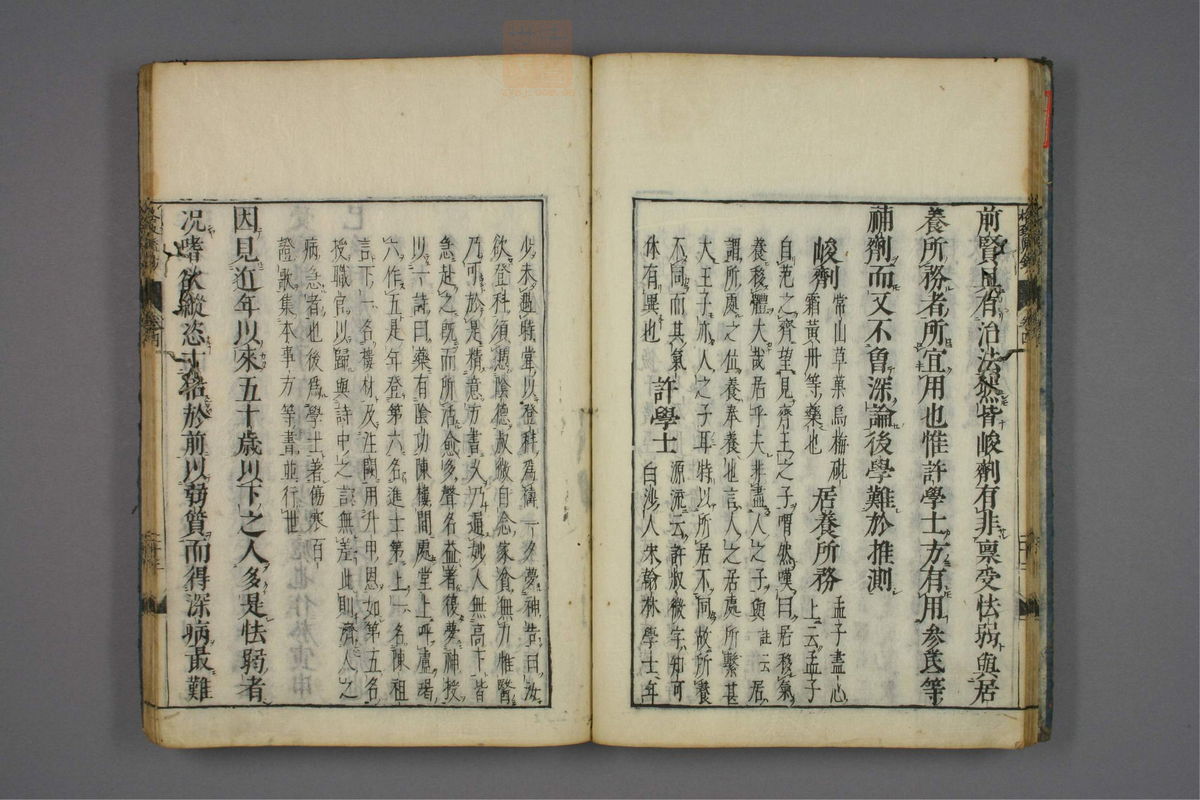 前賢凡有治法然皆峻劑有非稟受怯弱與居
養所務者所宜用也惟許學士方有用參芪等
補劑而又不曾深論後學難於推測
峻劑 常山草菓烏梅砒
霜黃丹等藥也 居養所務 孟子盡心
上云孟子
自范之齊望見齊王之子喟然嘆曰居移氣
養移體大哉居乎夫非盡人之子與 註云居
謂所處之位養奉養也言人之居處所繫甚
大王子亦人之子耳特以所居不同故所養
不同而其氣
体有異也 許學士 源流云許叔微字知可
白沙人宋翰林學士年
少未遇時嘗以登科為禱一夕夢神告曰汝
欲登科須憑陰德叔微自念家貧無力惟醫
乃可於是精意方書久乃通妙人無高下皆
急赴之既而所活愈多聲名益著復夢神授
以一詩曰藥有陰功陳樓間處堂上呼盧喝
六作五是年登第六名進士第上一名陳祖
言下一名樓材及注闕用升甲恩如第五名
授職官以歸與詩中之言無差此則濟人之
病急者也後為學士著傷寒百
證歌集本事方等書並行世
因見近年以來五十歲以下之人多是怯弱者
况嗜欲縱恣十倍於前以弱質而得深病最難